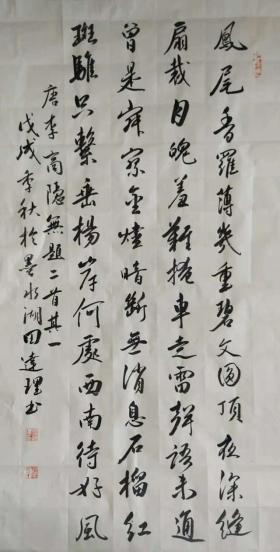 鳳尾香羅薄幾重碧文圓頂夜深縫
扇裁月魄羞難掩車走雷聲語未通
曾是寂寥金燼暗斷無消息石榴紅
班騅只繫垂楊岸何處西南待好風
唐李商隱無題二首其一
戊戌季秋於墨水湖田達理书